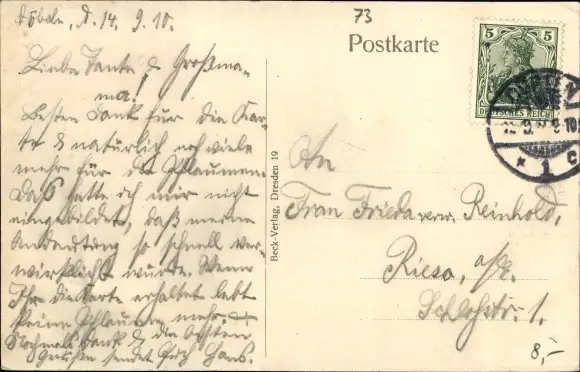 Döbeln, d. 14. 9. 10.
Liebe Tante & Großma-
ma!
Besten Dank für die Kar-
te & natürlich noch viele
mehr für die Pflaumen.
Daß hatte ich mir nicht
eingebildet, daß meine
Andeutung so schnell ver-
wirklicht würde. Wenn
Ihr die Karte erhaltet lebt
keine Pflaume mehr.
Nochmals Dank & die besten
Grüßen sendet Euch Hans.
73
Postkarte
5 5
DEUTSCHES REICH
* 1 c
Beck-Verlag, Dresden 19
An
Frau Frieda verw. Reinhold,
Riesa, a/E.
Schloßstr. 1.
8,-